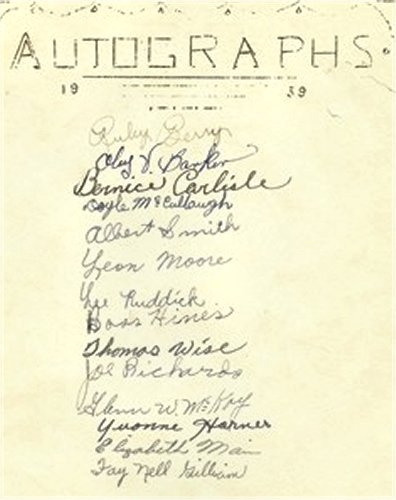 AUTOGRAPHS
19 39
Ruby Berry
Oley V. Barker
Bernice Carlisle
Doyle McCullaugh
Albert Smith
Leon Moore
Lee Ruddick
Boas Hines
Thomas Wise
Joe Richards
Glenn W. McKoy
Yvonne Harner
Elizabeth Main
Fay Nell Gilliam